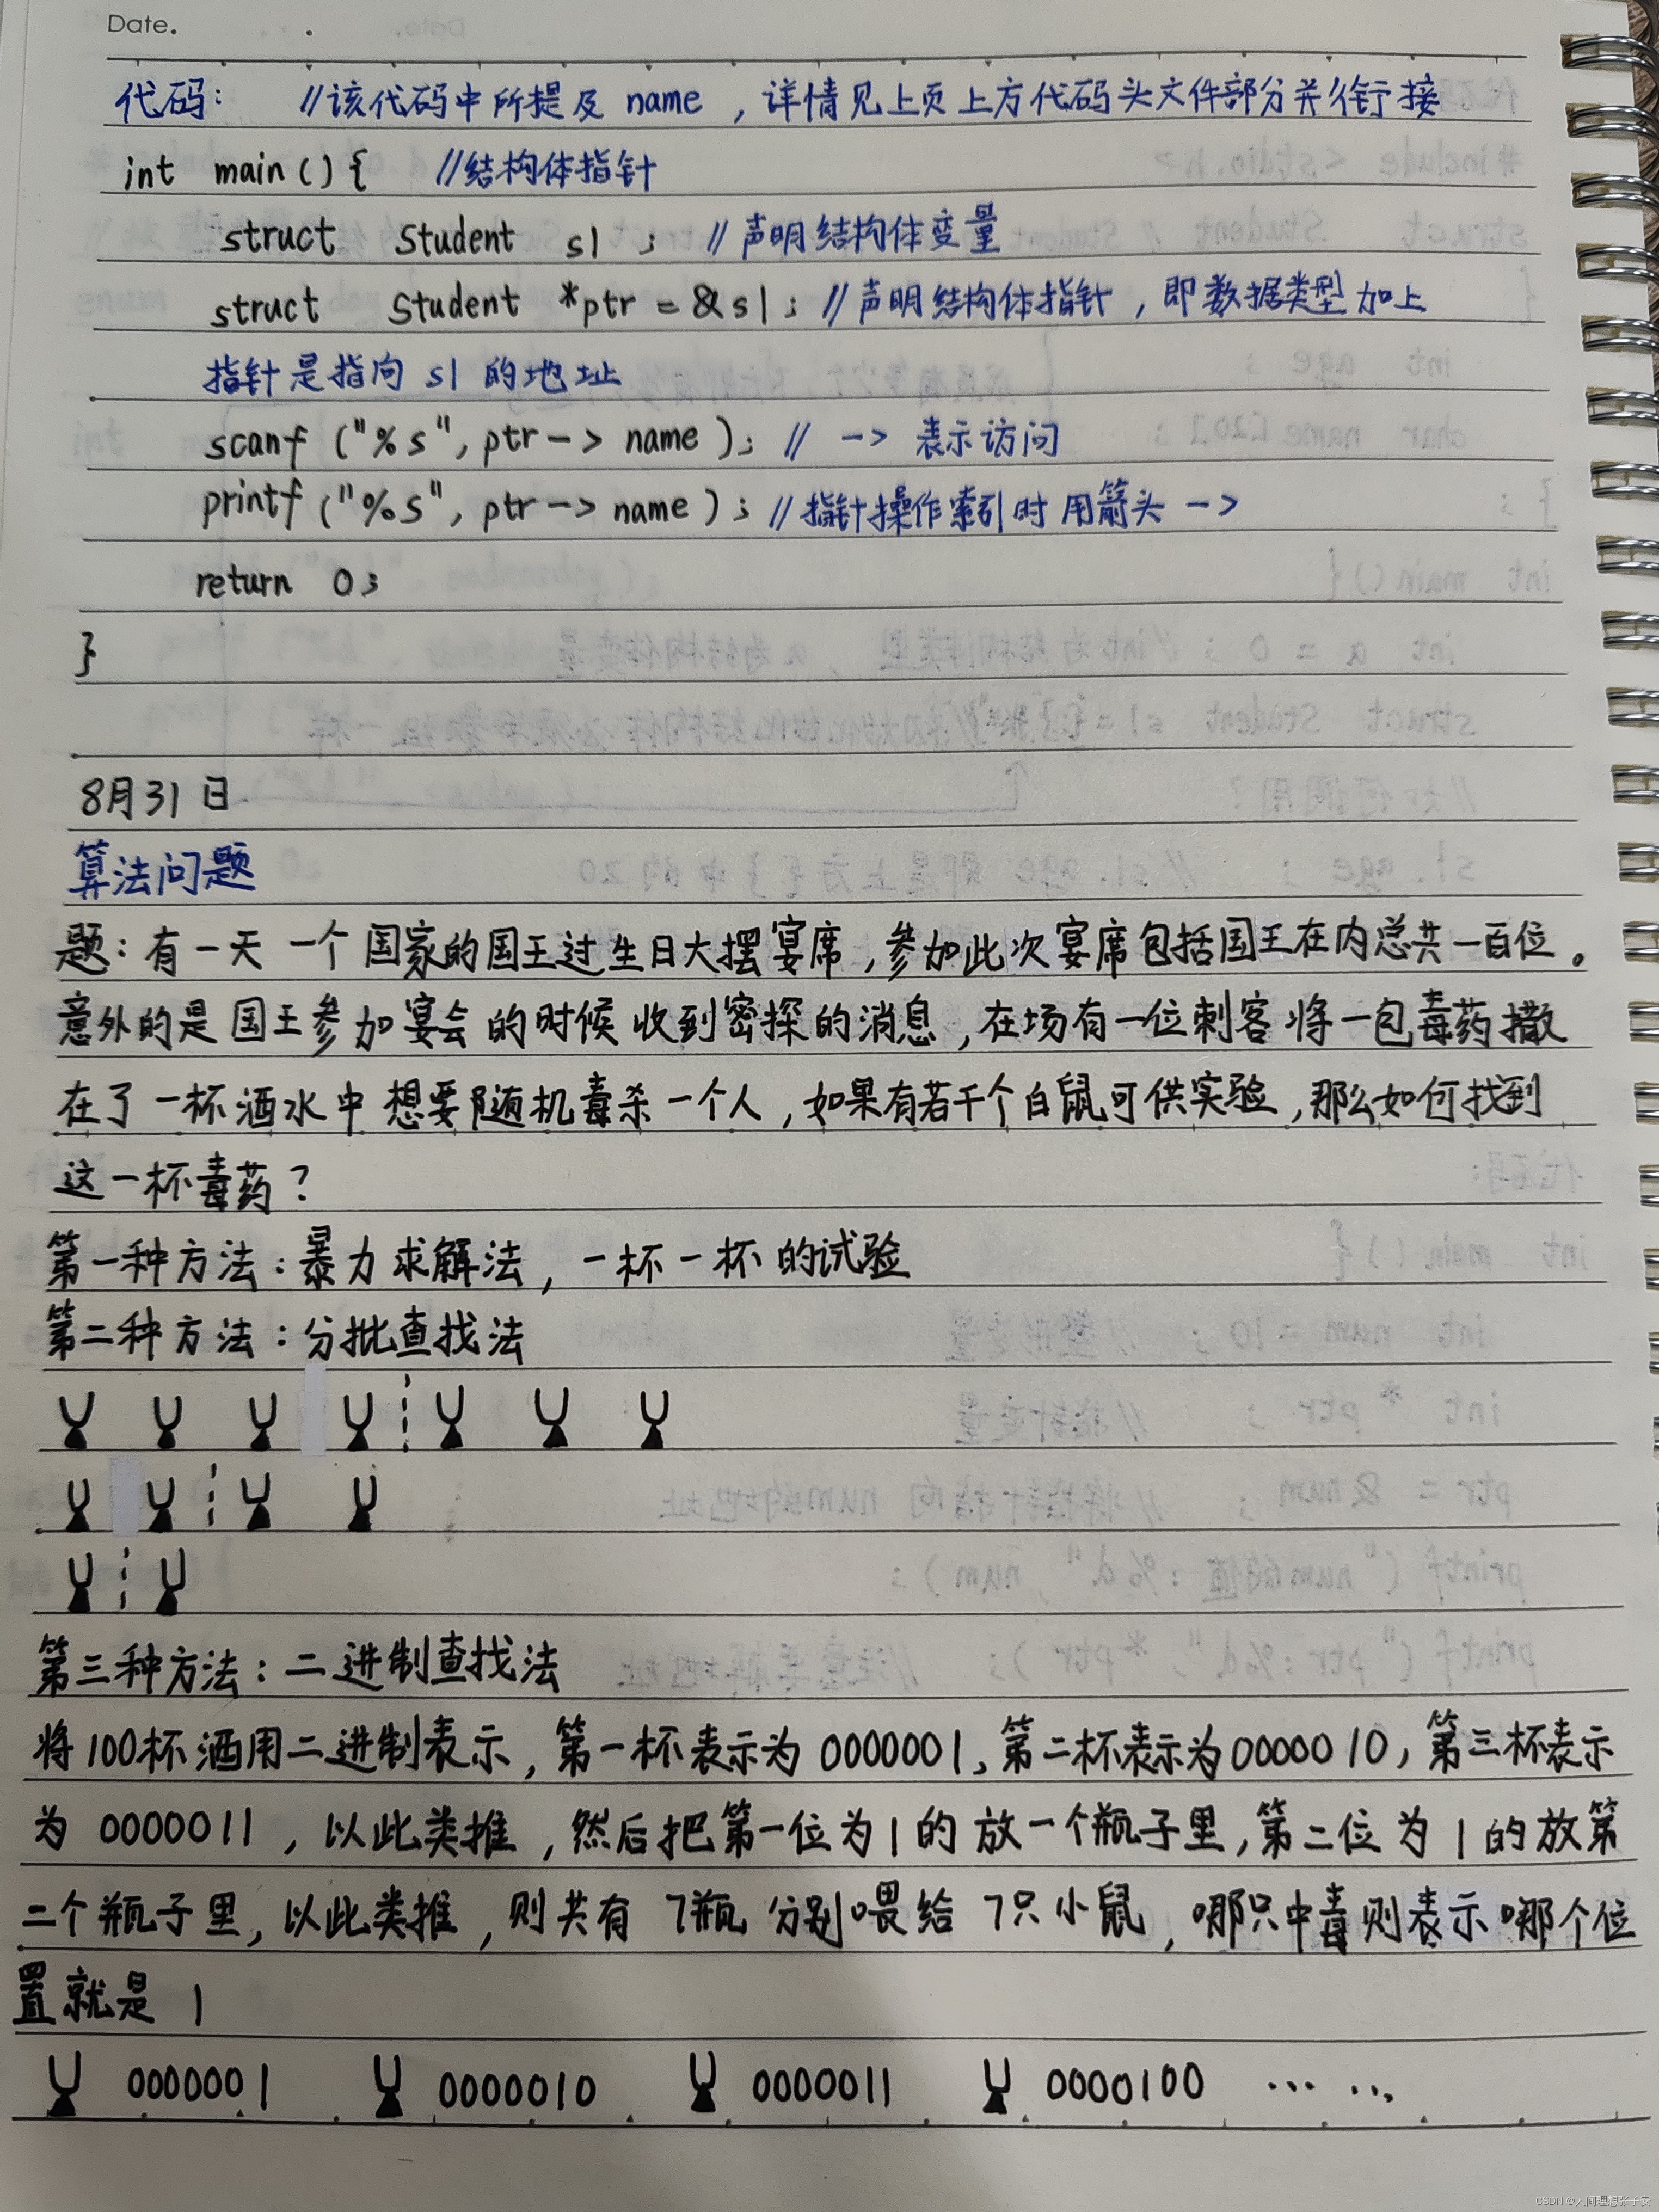 Date.
代码: //该代码中所提及 name ,详情见上页上方代码头文件部分并衔接
int main(){ //结构体指针
struct Student s1 ; //声明结构体变量
struct Student *ptr = &s1; //声明结构体指针,即数据类型加上
指针是指向 s1 的地址
scanf ("%s", ptr-> name ); // -> 表示访问
printf ("%s", ptr-> name ); //指针操作索引时用箭头 ->
return 0;
}
8月31日
算法问题
题:有一天 一个国家的国王过生日大摆宴席,参加此次宴席包括国王在内总共一百位。
意外的是国王参加宴会的时候收到密探的消息,在场有一位刺客将一包毒药撒
在了一杯酒水中想要随机毒杀一个人,如果有若干个白鼠可供实验,那么如何找到
这一杯毒药?
第一种方法:暴力求解法,一杯一杯的试验
第二种方法:分批查找法
第三种方法:二进制查找法
将100杯酒用二进制表示,第一杯表示为0000001,第二杯表示为0000010,第三杯表示
为 0000011 ,以此类推,然后把第一位为1的放一个瓶子里,第二位为1的放第
二个瓶子里,以此类推,则共有 7瓶 分别喂给 7只小鼠,哪只中毒则表示哪个位
置就是 1
0000001 0000010 0000011 0000100 ... ...
CSDN @人间理想张子安